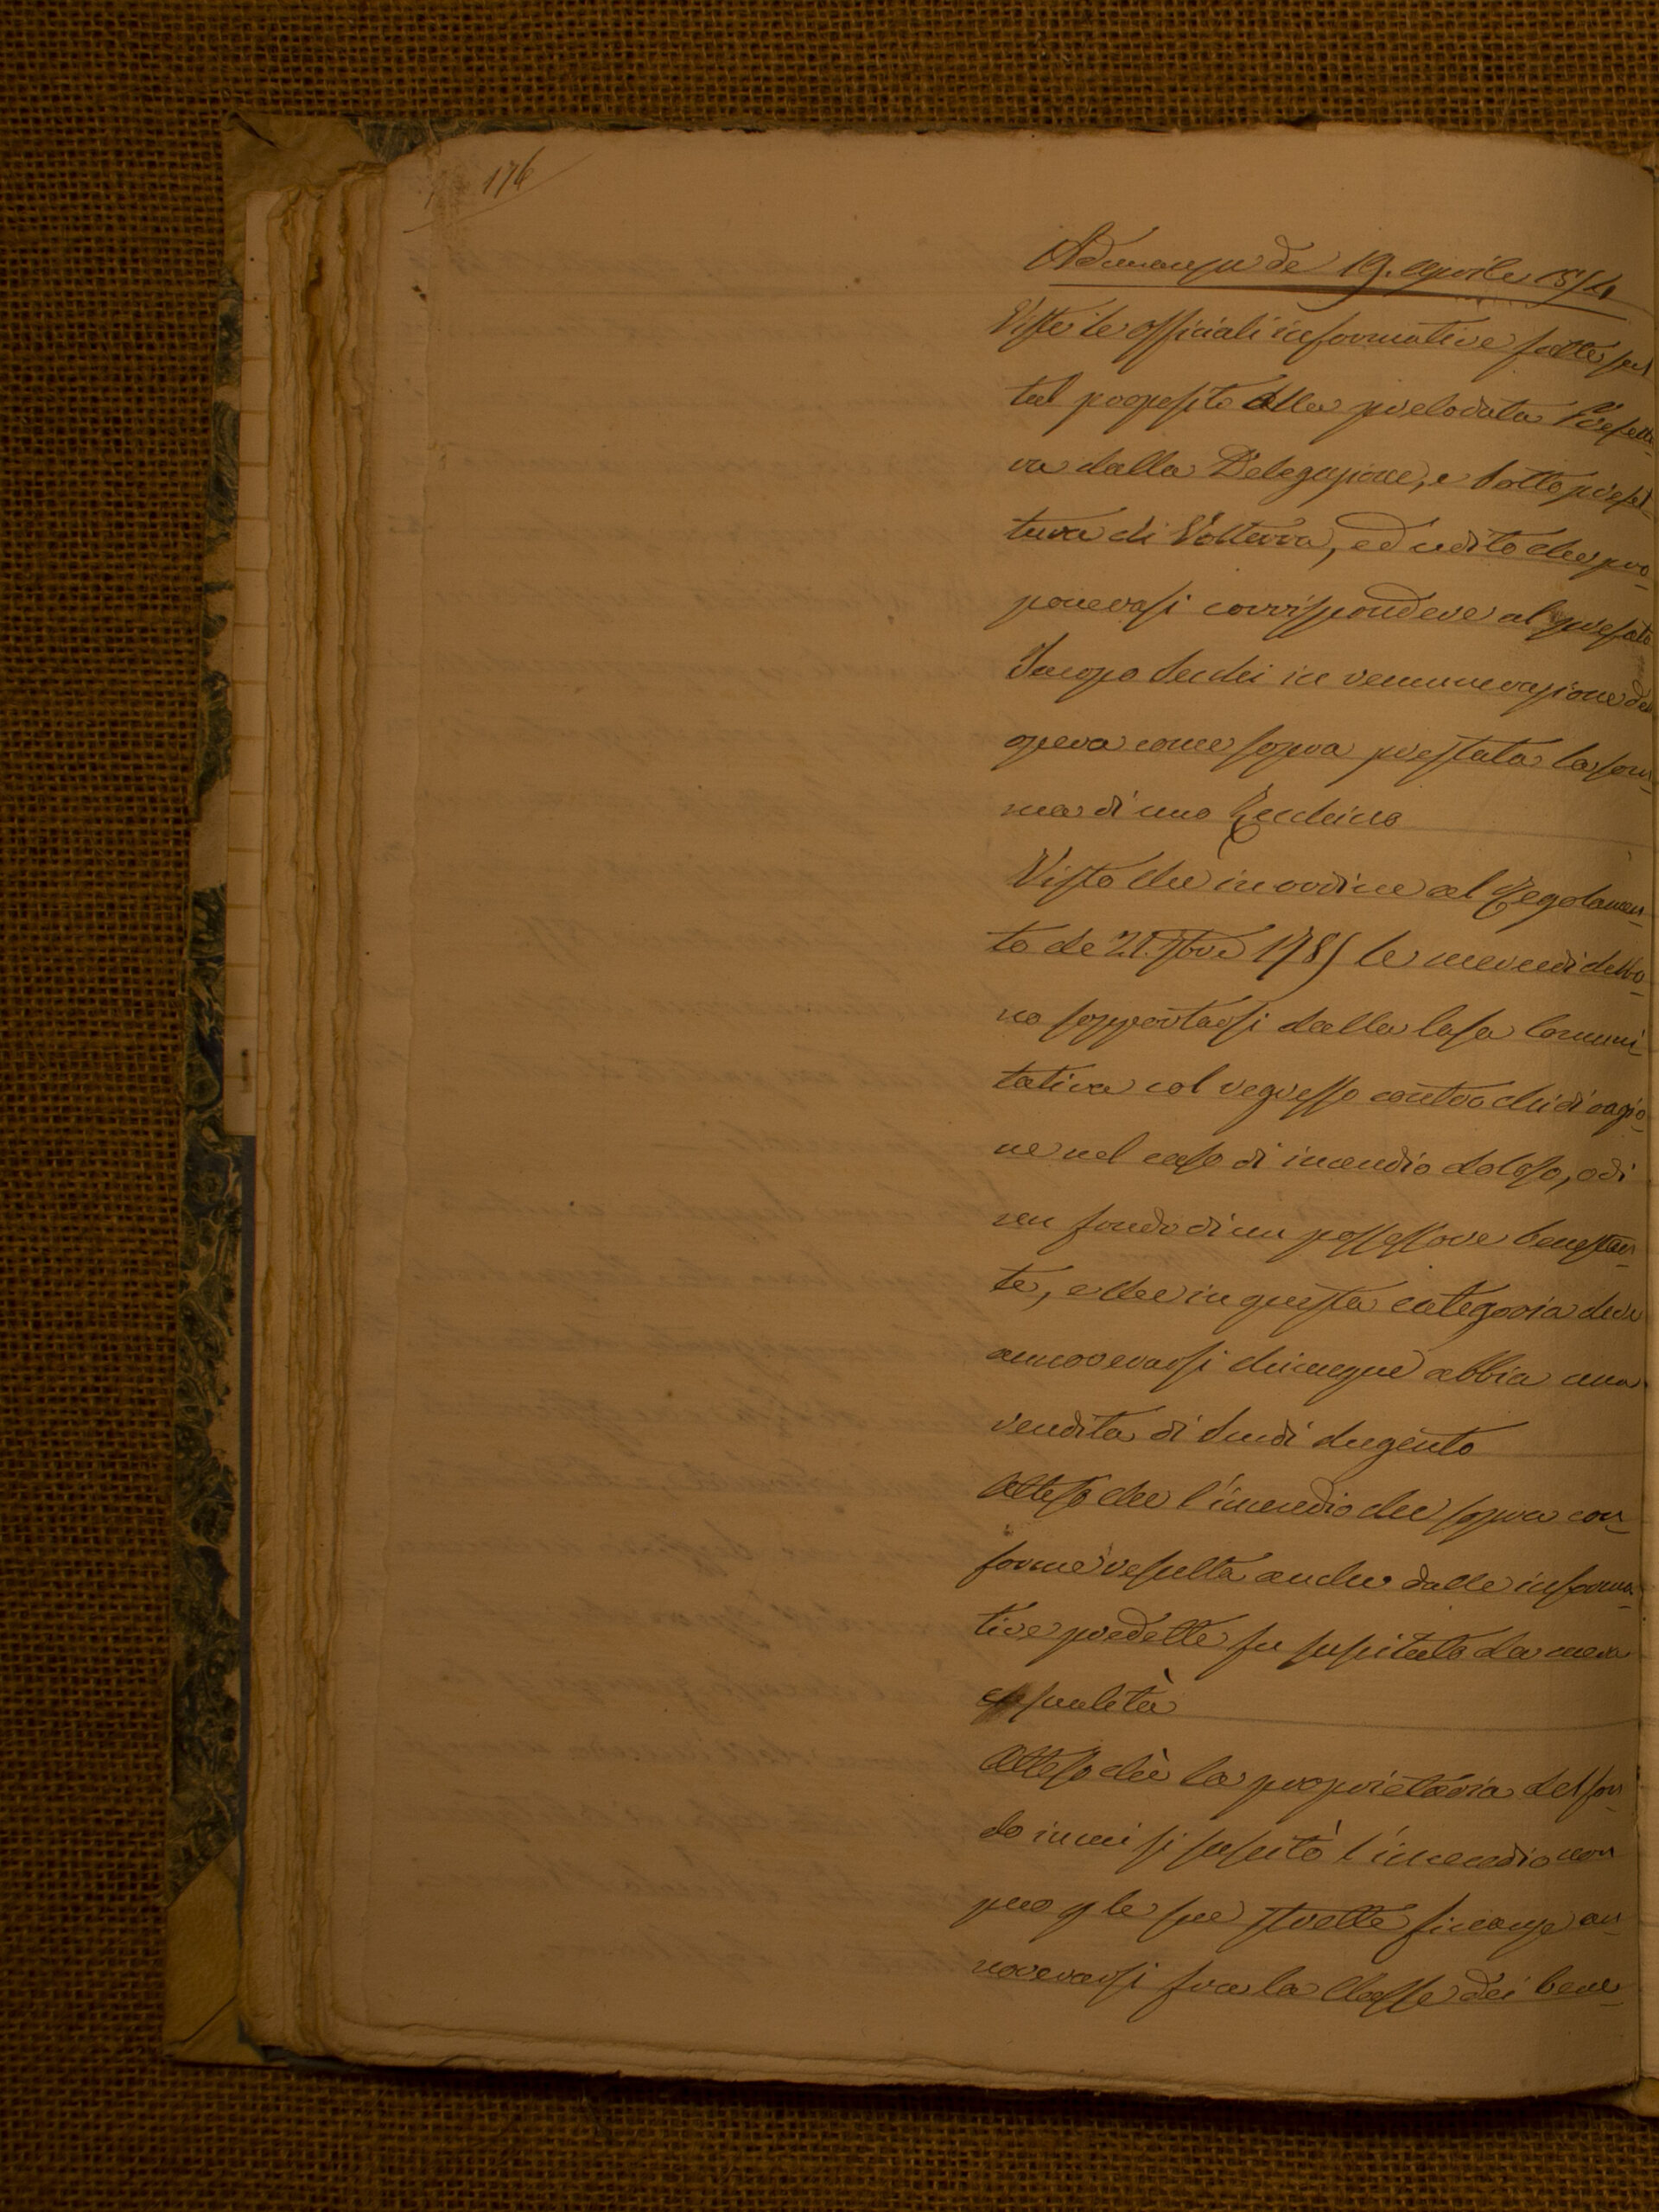 176
Adunanza de 19. Aprile 1854
Viste le officiali informative fatte sul
tal proposito alla prelodata Prefettu
ra dalla Delegazione, e Sotto prefet
tura di Volterra, ed udito che pro
ponevasi corrispondere al prefato
Jacopo Sechi in remunerazione del
opera come sopra prestata la som
ma di uno Zecchino
Visto che in ordine al Regolamen
to de 21. 1785 le mercedi debbo
no sopportarsi dalla Casa Comuni
tativa col regresso contro chi di ragio
ne nel caso di incendio doloso, o di
un fondo di un possessore benestan
te, e che in questa categoria deve
annoverarsi chiunque abbia una
rendita di Scudi dugento
Atteso che l'incendio che sopra con
forme resulta anche dalle informa
tive predette fu suscitato da mera
casualità
Atteso chè la proprietaria del fon
do in cui si suscitò l'incendio non
può p le sue strette finanze an
noverarsi fra la Classe dei bene